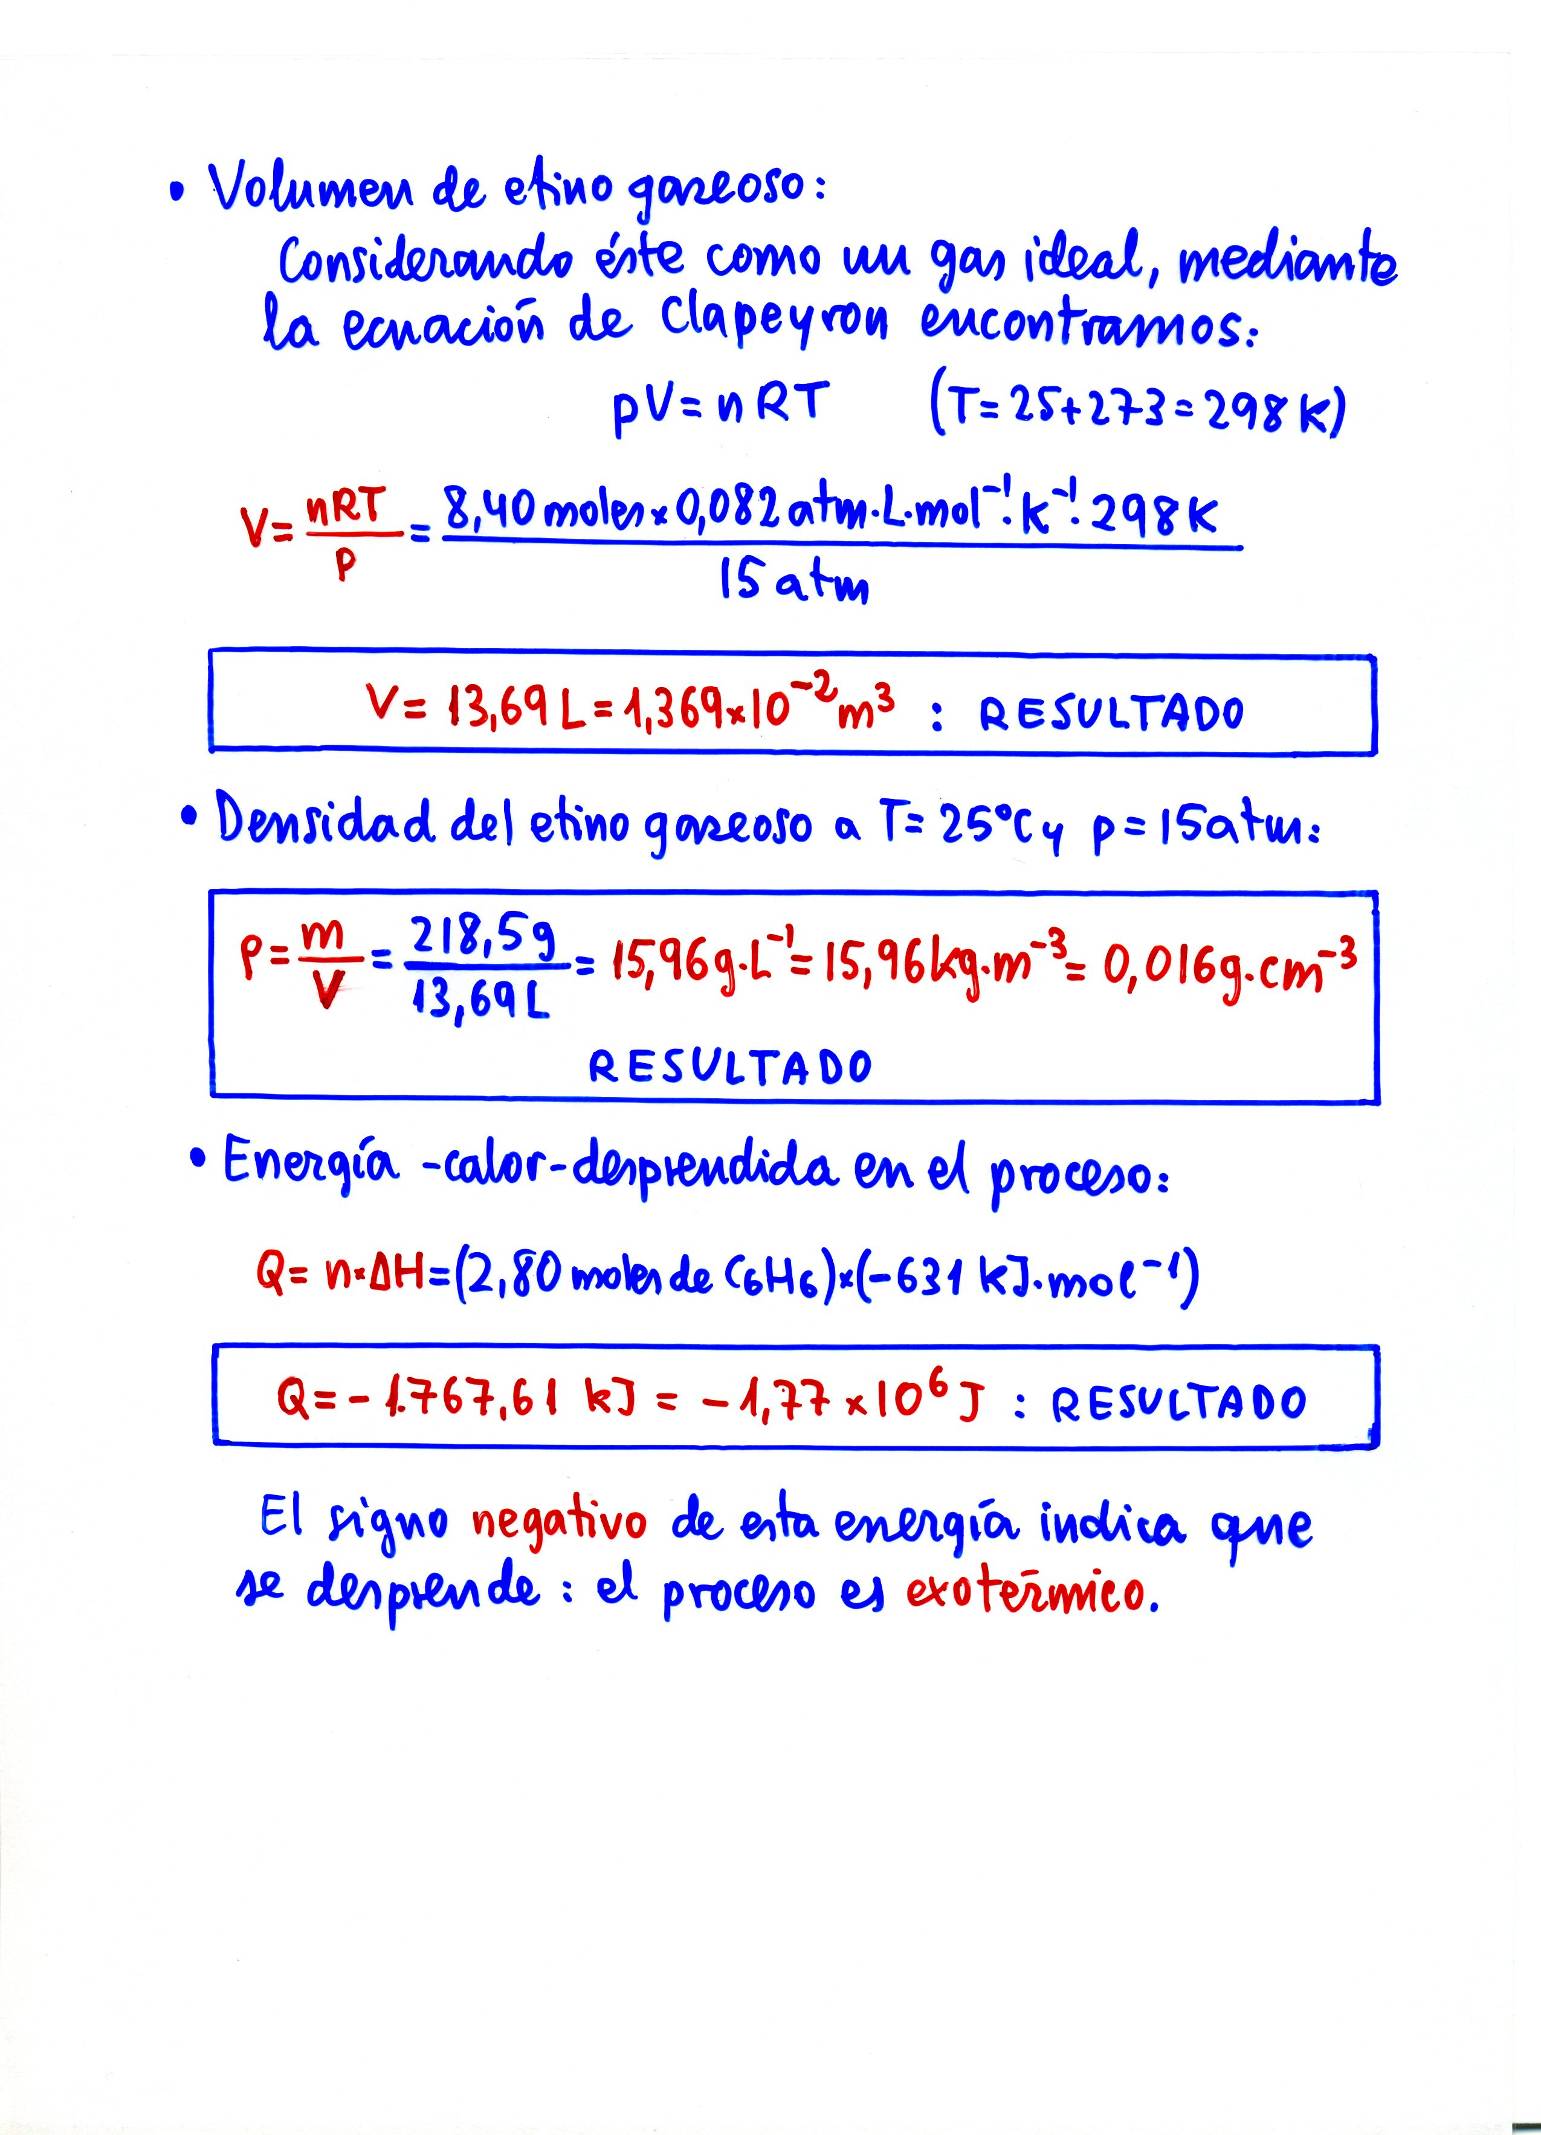 • Volumen de etino gaseoso:
Considerando éste como un gas ideal, mediante
la ecuación de Clapeyron encontramos:
pV = nRT (T = 25+273 = 298 K)
V = nRT/p = 8,40 moles × 0,082 atm·L·mol⁻¹·K⁻¹·298 K / 15 atm
V = 13,69 L = 1,369×10⁻² m³ : RESULTADO
• Densidad del etino gaseoso a T = 25°C y p = 15 atm:
ρ = m/V = 218,5 g / 13,69 L = 15,96 g·L⁻¹ = 15,96 kg·m⁻³ = 0,016 g·cm⁻³
RESULTADO
• Energía -calor- desprendida en el proceso:
Q = n×ΔH = (2,80 moles de C6H6)×(-631 kJ·mol⁻¹)
Q = -1.767,61 kJ = -1,77×10⁶ J : RESULTADO
El signo negativo de esta energía indica que
se desprende : el proceso es exotérmico.